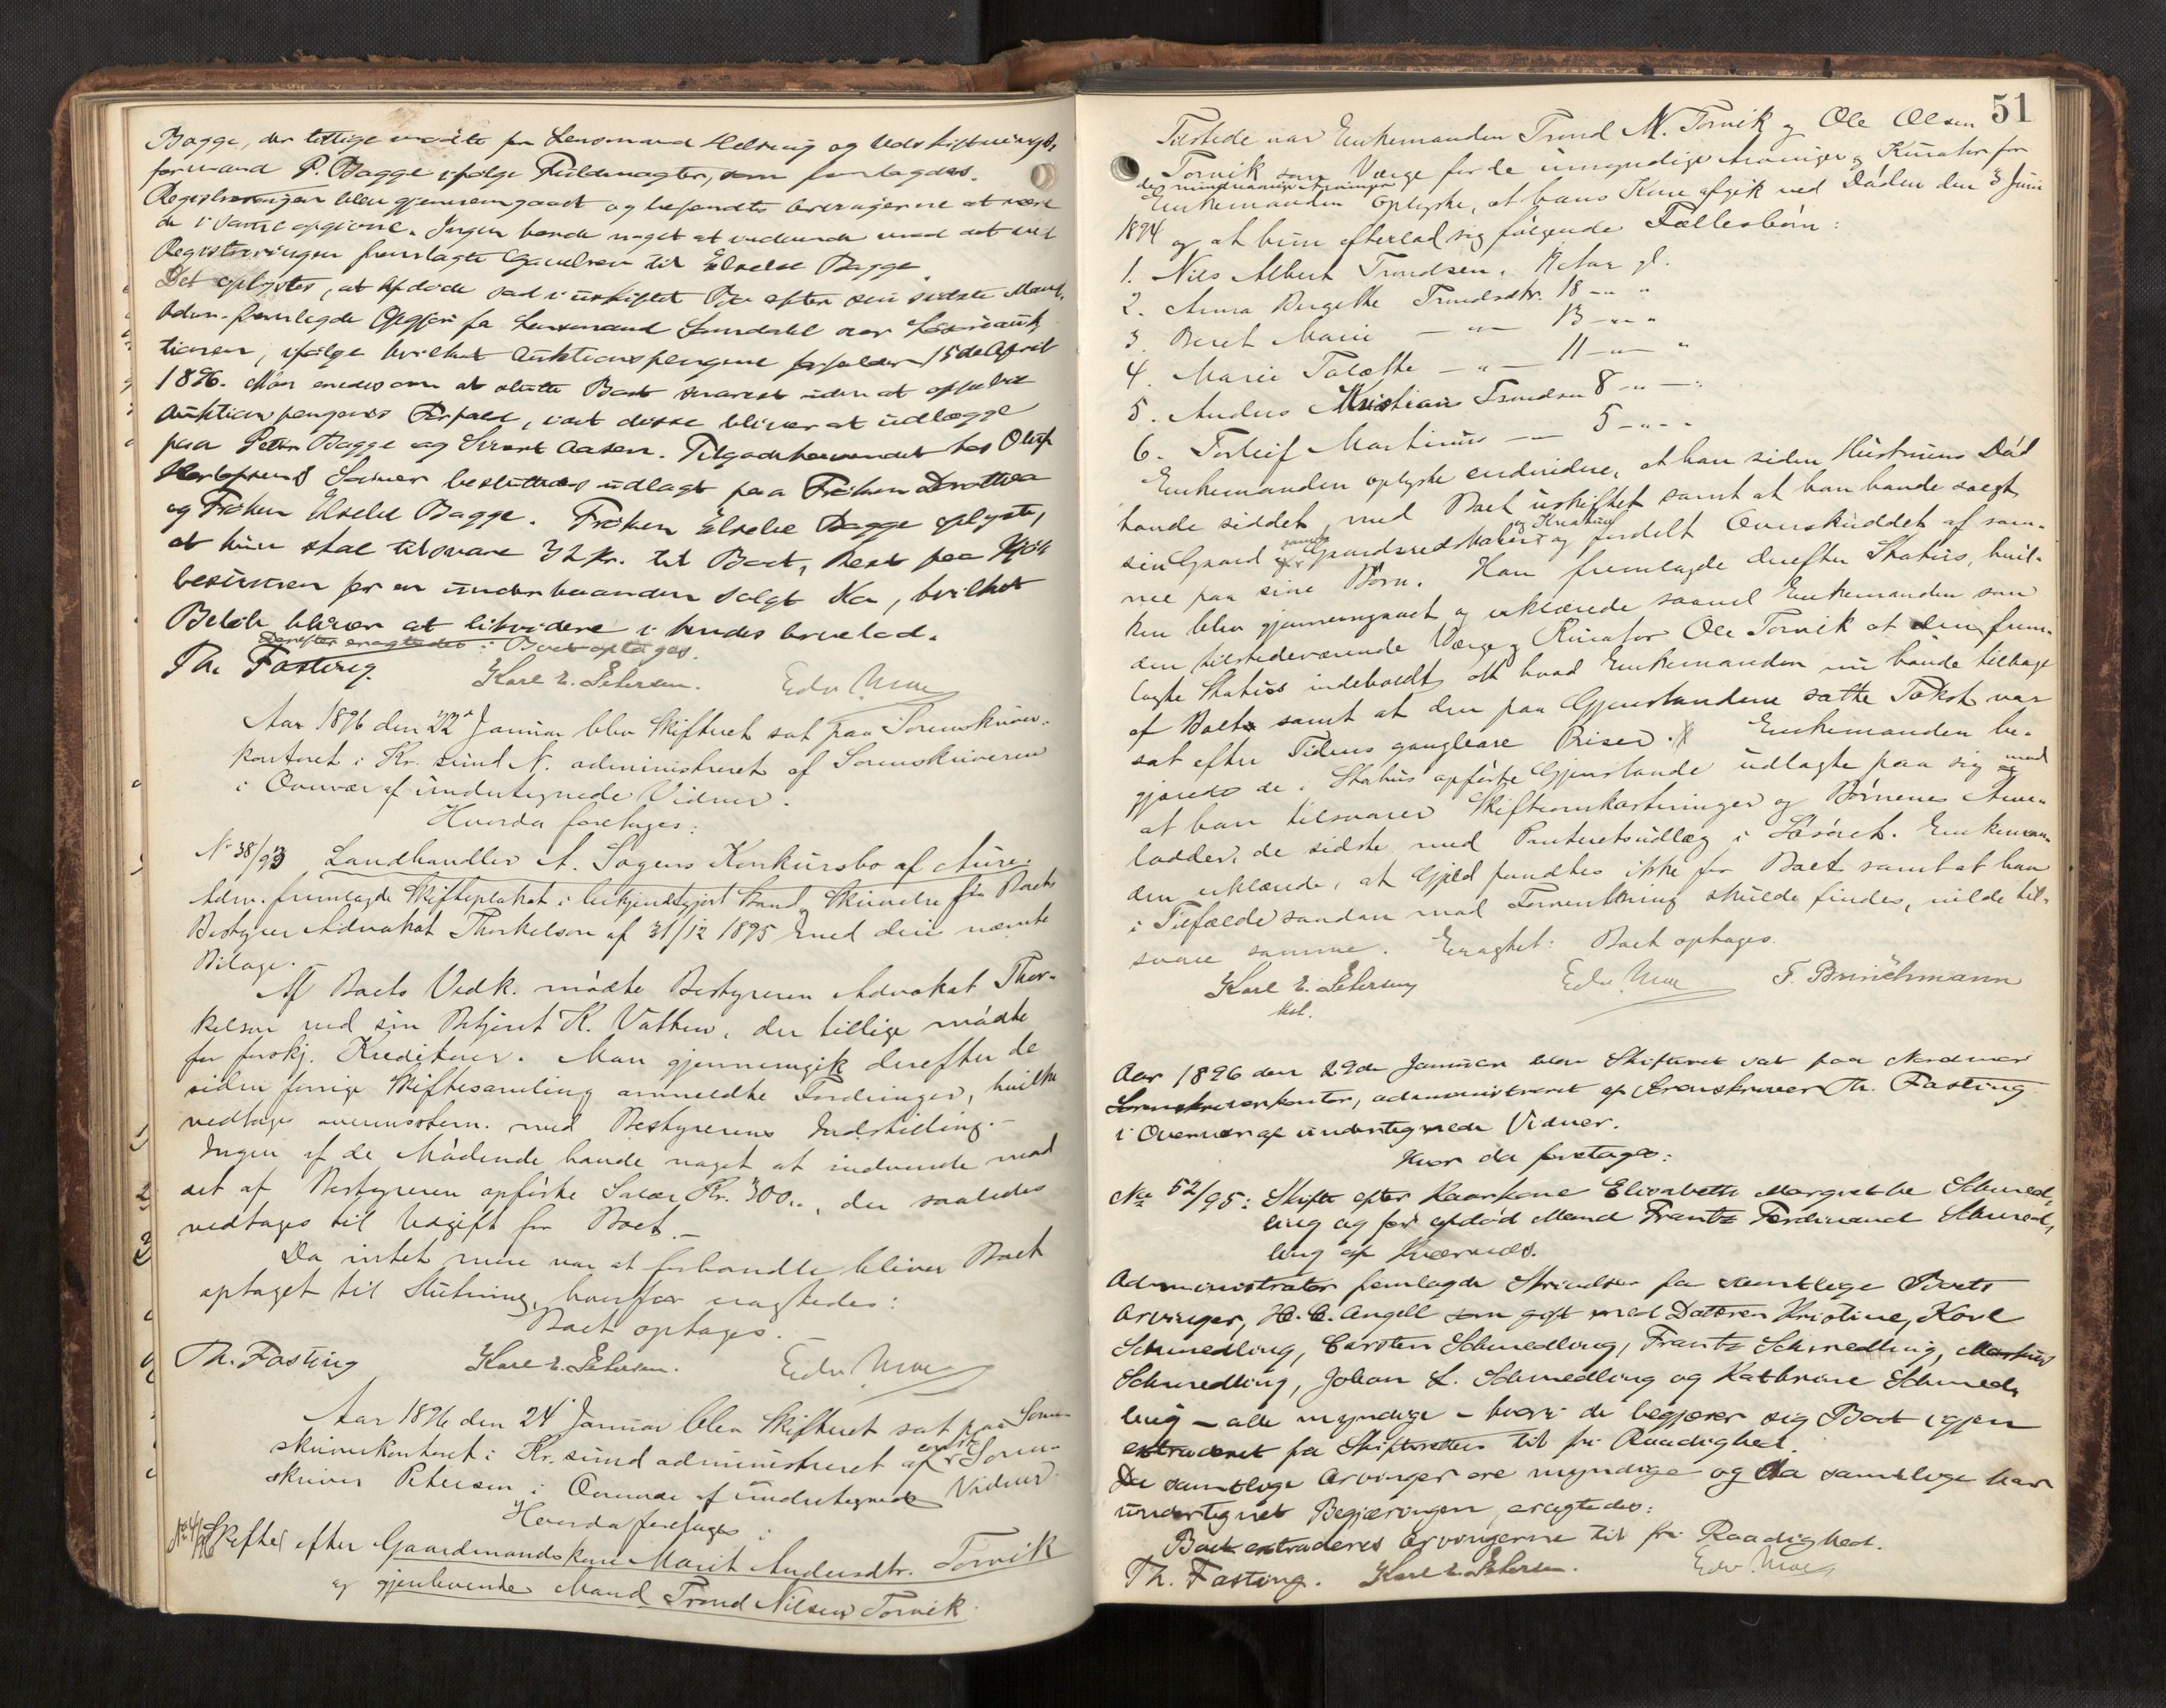 Bagge, der tillige mødte for Lensmand Helsing og Udskiftnings-
formand P. Bagge ifølge Fuldmagter, som fremlagdes.
Registreringen blev gjennemgaaet og befandtes Arvingerne at være
de i samme opgivne. Ingen havde noget at indvende mod det ved
Registreringen fremlagte Gavebrev til Elselie Bagge.
Det oplystes, at Afdøde sad i uskiftet Bo efter sin sidste Mand.
Adm. fremlagde Opgjør fra Lensmand Sundahl over Løsøreauk-
tionen, ifølge hvilket Auktionspengene forfalder 15de April
1896. Man enedes om at slutte Boet snarest uden at afvente
Auktionspengenes Forfald, idet disse bliver at udlægge
paa Peter Bagge og Sivert Aasen. Tilgodehavendet hos Oluf
Sønner besluttedes udlagt paa Frøken Drothea
og Frøken Elselie Bagge. Frøken Elselie Bagge oplyste,
at hun skal tilsvare 32 Kr. til Boet, Rest paa Kjøb
besummen for en underhaanden solgt Ko, hvilket
Beløb bliver at likvidere i hendes Arvelod.
Derefter eragtedes: Boet optages.
Th. Fasting. Karl E. Petersen. Edv Moe
Aar 1896 den 22de Januar blev Skifteret sat paa Sorenskriver-
kontoret i Kr.sund N. administreret af Sorenskriveren
i Overvær af undertegnede Vidner.
Hvorda foretages:
No 38/93 Landhandler A. Sagens Konkursbo af Aure.
Adm. fremlagde Skifteplakat i bekjendtgjort Stand, Skrivelse fra Boets
Bestyrer Advokat Thorkelson af 31/12 1895 med deri nævnte
Bilage.
Af Boets Vedk. mødte Bestyreren Advokat Thor-
kelson ved sin Betjent K. Vatten, der tillige mødte
for forskj. Kreditorer. Man gjennemgik derefter de
siden forrige Skiftesamling anmeldte Fordringer, hvilke
vedtages overensstem. med Bestyrerens Indstilling.-
Ingen af de Mødende havde noget at indvende mod
det af Bestyreren opførte Salær Kr. 300.., der saaledes
vedtages til Udgift for Boet.-
Da intet mere var at forhandle bliver Boet
optaget til Slutning, hvorfor eragtedes:
Boet optages.-
Th. Fasting Karl E. Petersen. Edv Moe
Aar 1896 den 24de Januar blev Skifteret sat paa Soren-
skriverkontoret i Kr.sund administreret af const. Soren-
skriver Petersen i Overvær af undertegnede Vidner
Hvorda foretages:
Skiftet efter Gaardmandskone Marit Andersdtr. Torvik
og gjenlevende Mand Trond Nilsen Torvik.
51
Tilstede var Enkemanden Trond N. Torvik og Ole Olsen
Torvik som Værge for de umyndige Arvinger og Kurator for
de mindreaarige Arvinger
Enkemanden oplyste, at hans Kone afgik ved Døden den 3 Juni
1894 og at hun efterlod sig følgende Fællesbørn:
1. Nils Albert Trondsen, Aar gl.
2. Anna Birgitte Trondsdtr. 18 -"- "
3. Beret Marie -"- 13 -"- "
4. Marie Talette -"- 11 -"- "
5. Anders Kristian Trondsen 8 -"- "
6. Torleif Martinus -"- 5 -"- "
Enkemanden oplyste endvidere, at han siden Hustruens Død
havde siddet med Boet uskiftet samt at han havde solgt
sin Gaard samt Gaardsredskaber og Kreaturer og fordelt Overskuddet af sam-
me paa sine Børn. Han fremlagde derefter Status, hvil-
ken blev gjennemgaaet og erklærede saavel Enkemanden som
den tilstedeværende Værge og Kurator Ole Torvik at den frem-
lagte Status indeholdt alt hvad Enkemanden nu havde tilbage
af Boet samt at den paa Gjenstandene satte Takst var
sat efter Tidens gangbare Priser. Enkemanden be-
gjærede de i Status opførte Gjenstande udlagte paa sig mod
at han tilsvarer Skifteomkostninger og Børnenes Arve-
lodder, de sidste med Panteretsudlæg i Løsøret. Enkeman-
den erklærede, at Gjæld fandtes ikke for Boet samt at han
i Tilfælde saadan mod Formodning skulde findes, vilde til-
svare samme. Eragtet: Boet optages.
Karl E. Petersen Edv Moe T. Brinchmann
kst.
Aar 1896 den 29de Januar blev Skifteret sat paa Nordmør
Sorenskriverkontor, administreret af Sorenskriver Th. Fasting
i Overvær af undertegnede Vidner.
Hvor da foretages:
No 52/95: Skifte efter Kaarkone Elisabeth Margrethe Schmed-
ling og før afdød Mand Frantz Ferdinand Schmed-
ling af Kværnæs.
Administrator fremlagde Skrivelse fra samtlige Boets
Arvinger, H. C. Angell som gift med Datteren Kristine, Karl
Schmedling, Carsten Schmedling, Frantz Schmedling, Markus
Schmedling, Johan L. Schmedling og Kathrine Schmed-
ling - alle myndige - hvori de begjærer sig Boet igjen
extraderet fra Skifteretten til fri Raadighed.
Da samtlige Arvinger ere myndige og da samtlige har
undertegnet Begjæringen eragtedes:
Boet extraderes Arvingerne til fri Raadighed.
Th. Fasting. Karl E. Petersen. Edv. Moe